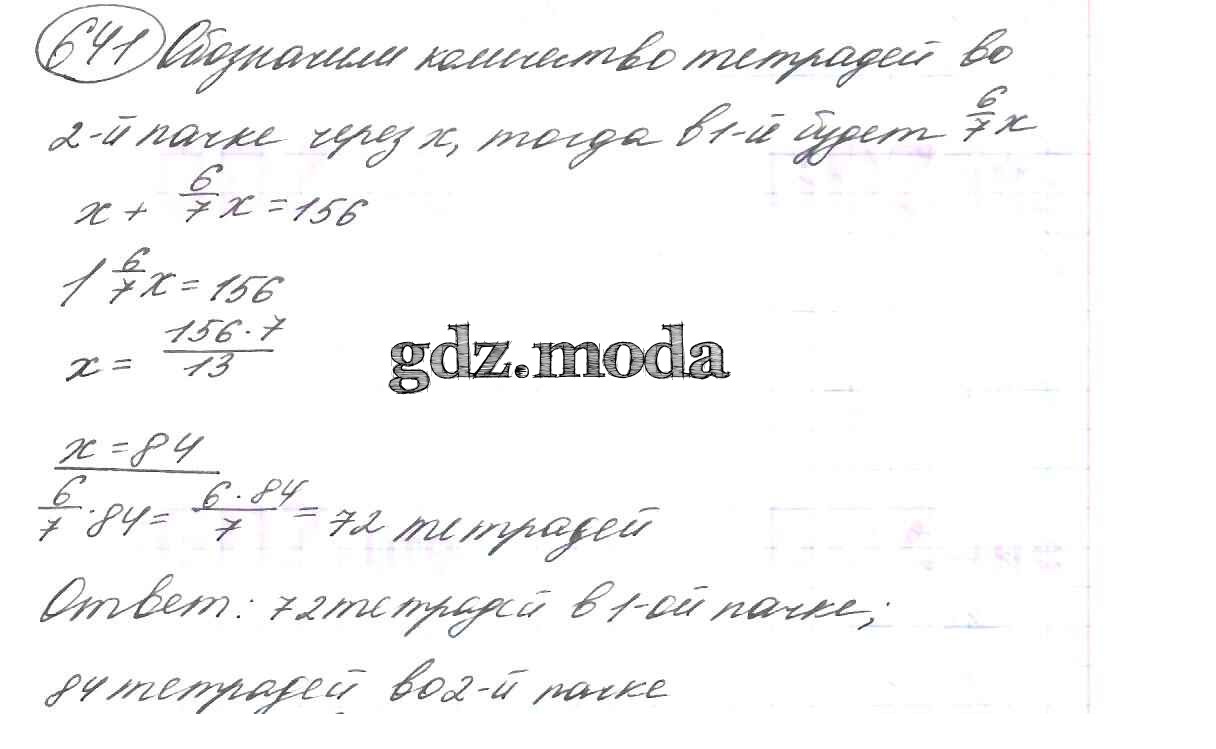 641 Обозначим количество тетрадей во
2-й пачке через x, тогда в 1-й будет 6/7 x
x + 6/7 x = 156
1 6/7 x = 156
x = 156·7/13
gdz.moda
x = 84
6/7 · 84 = 6·84/7 = 72 тетрадей
Ответ: 72 тетрадей в 1-ой пачке;
84 тетрадей во 2-й пачке